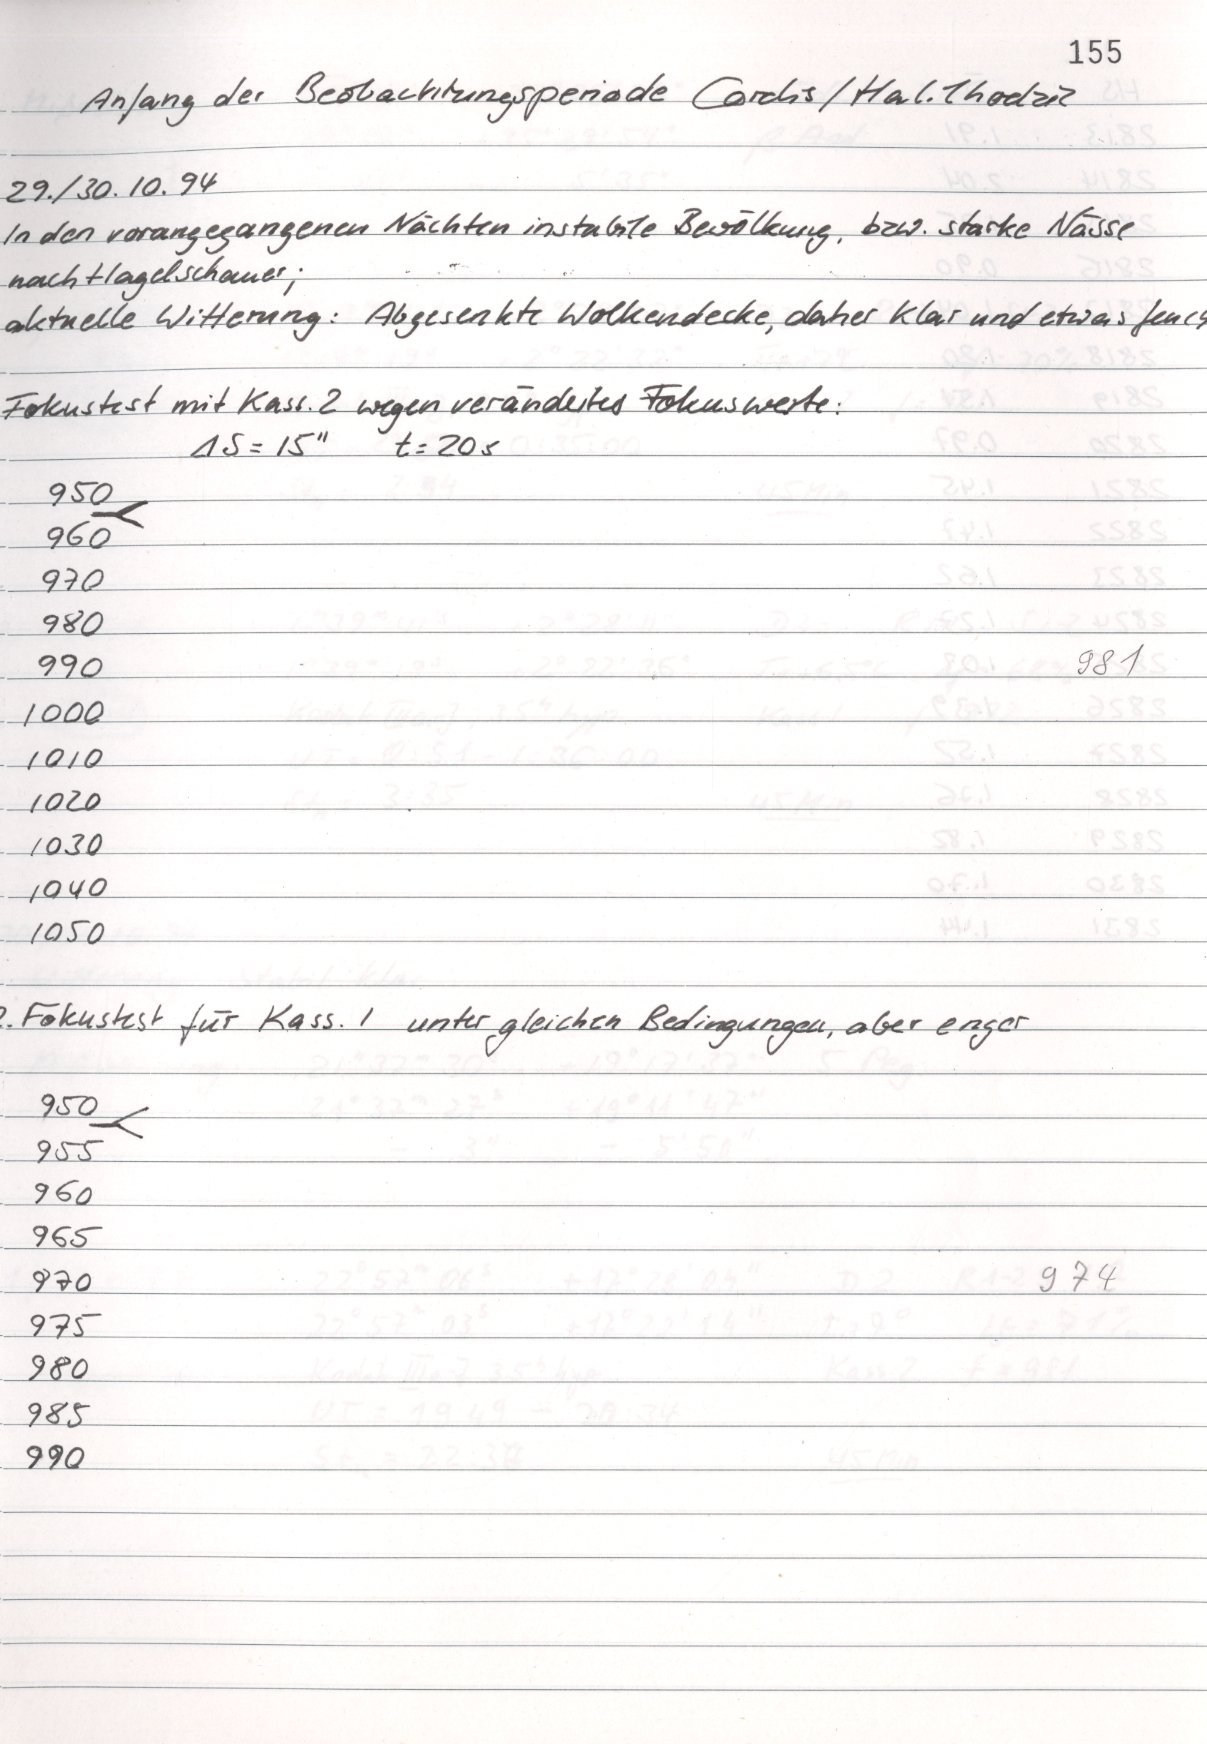 155
Anfang der Beobachtungsperiode Cordis/Hal.
29./30.10.94
In den vorangegangenen Nächten instabile Bewölkung, bzw. starke Nässe
nach Hagelschauer;
aktuelle Witterung: Abgesenkte Wolkendecke, daher klar und etwas feucht
Fokustest mit Kass. 2 wegen veränderter Fokuswerte:
ΔS = 15" t = 20s
950
960
970
980
990 981
1000
1010
1020
1030
1040
1050
2. Fokustest für Kass. 1 unter gleichen Bedingungen, aber enger
950
955
960
965
970 974
975
980
985
990